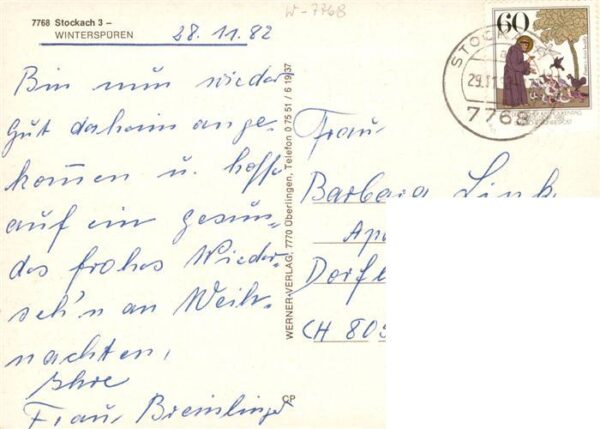 7768 Stockach 3 –
WINTERSPÜREN
28.11.82
W-7768
Bin nun wieder
gut daheim ange-
kommen u. hoffe
auf ein gesun-
des frohes Wieder-
seh'n an Weih-
nachten,
Ihre
Frau Breinlinger
WERNER-VERLAG, 7770 Überlingen, Telefon 0 75 51 / 6 19 37
CP
60
STOCK
29.11
7768
Frau
Barbara Link
Apo
Dorf
CH 805